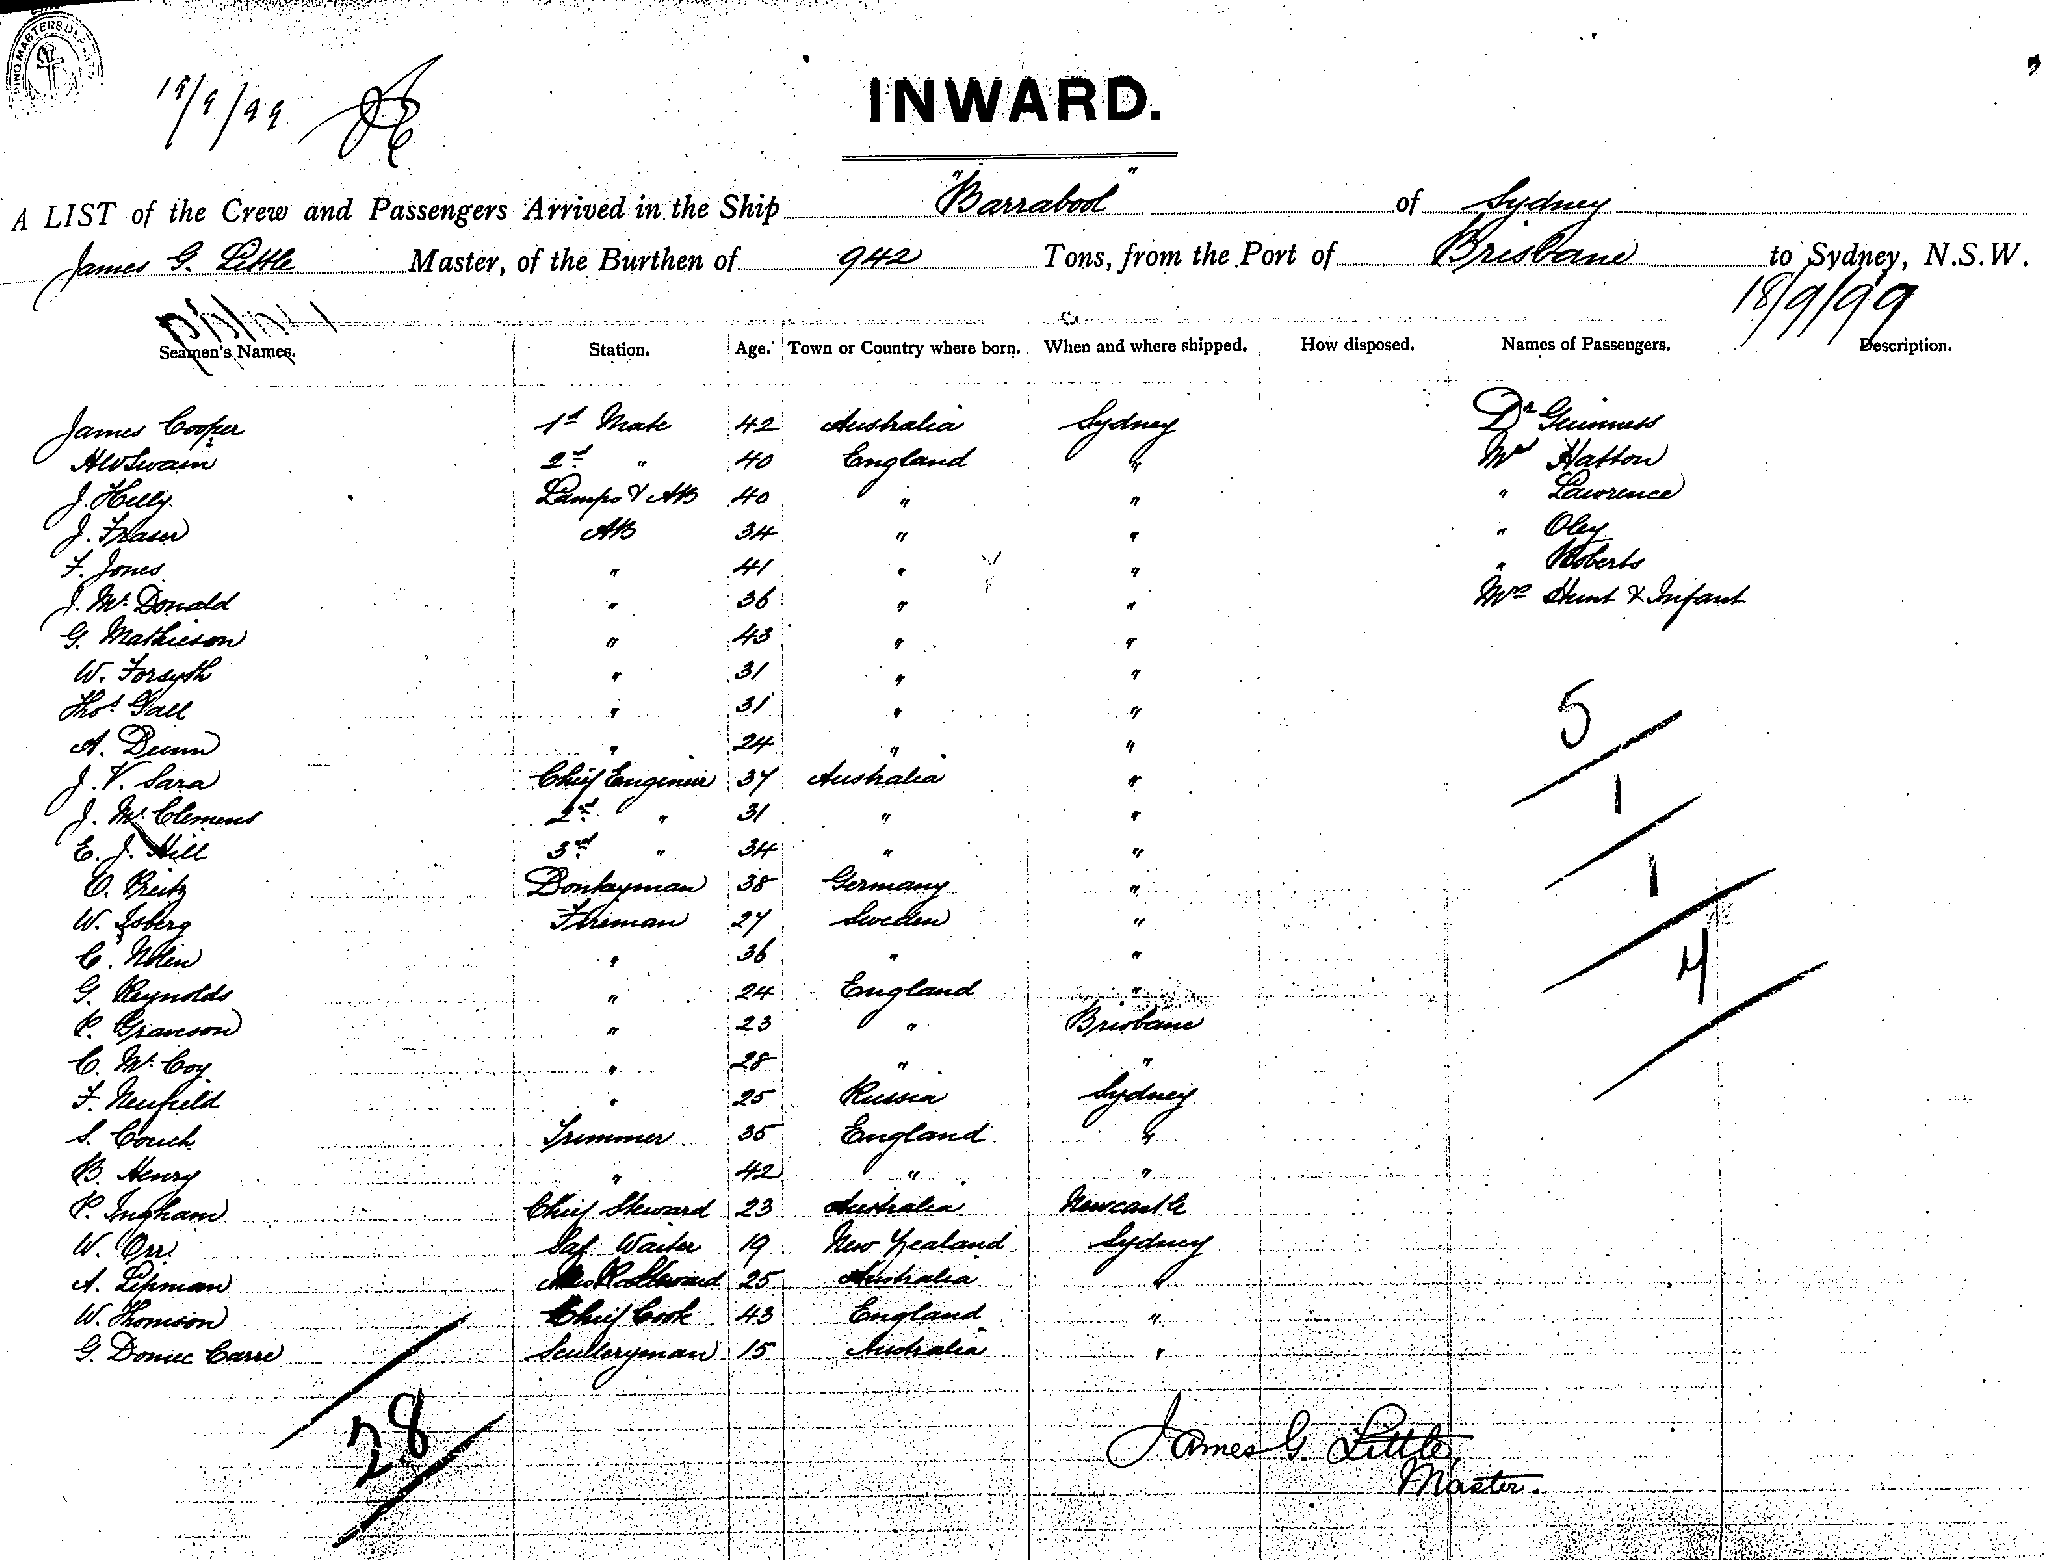 18/9/99
INWARD.
A LIST of the Crew and Passengers Arrived in the Ship "Barrabool" of Sydney
James G. Little Master, of the Burthen of 942 Tons, from the Port of Brisbane to Sydney, N.S.W.
18/9/99
Seamen's Names. Station. Age. Town or Country where born. When and where shipped. How disposed. Names of Passengers. Description.
James Cooper 1st Mate 42 Australia Sydney Dr Guinness
HW Swain 2nd " 40 England " Mr Hatton
J. Hilly Lamps & AB 40 " " " Lawrence
J. Fraser AB 34 " " " Oley
F. Jones " 41 " " " Roberts
J. McDonald " 36 " " Mrs Hunt & Infant
G. Mathieson " 43 " "
W. Forsyth " 31 " "
Thos Gall " 31 " "
A. Dunn " 24 " "
J. V. Sara Chief Engineer 37 Australia "
J. McClemens 2nd " 31 " "
E. J. Hill 3rd " 34 " "
O. Reitz Donkeyman 38 Germany "
W. Isberg Fireman 27 Sweden "
C. Nolin " 36 " "
G. Reynolds " 24 England "
P. Granson " 23 " Brisbane
C. McCoy " 28 " "
F. Neufield " 25 Russia Sydney
S. Couch Trimmer 35 England "
B. Henry " 42 " "
P. Ingham Chief Steward 23 Australia Newcastle
W. Orr Saf Waiter 19 New Zealand Sydney
A. Lipman Steward 25 Australia "
W. Thomson Chief Cook 43 England "
G. Carre Sculleryman 15 Australia "
5
1
1
4
28
James G. Little
Master.